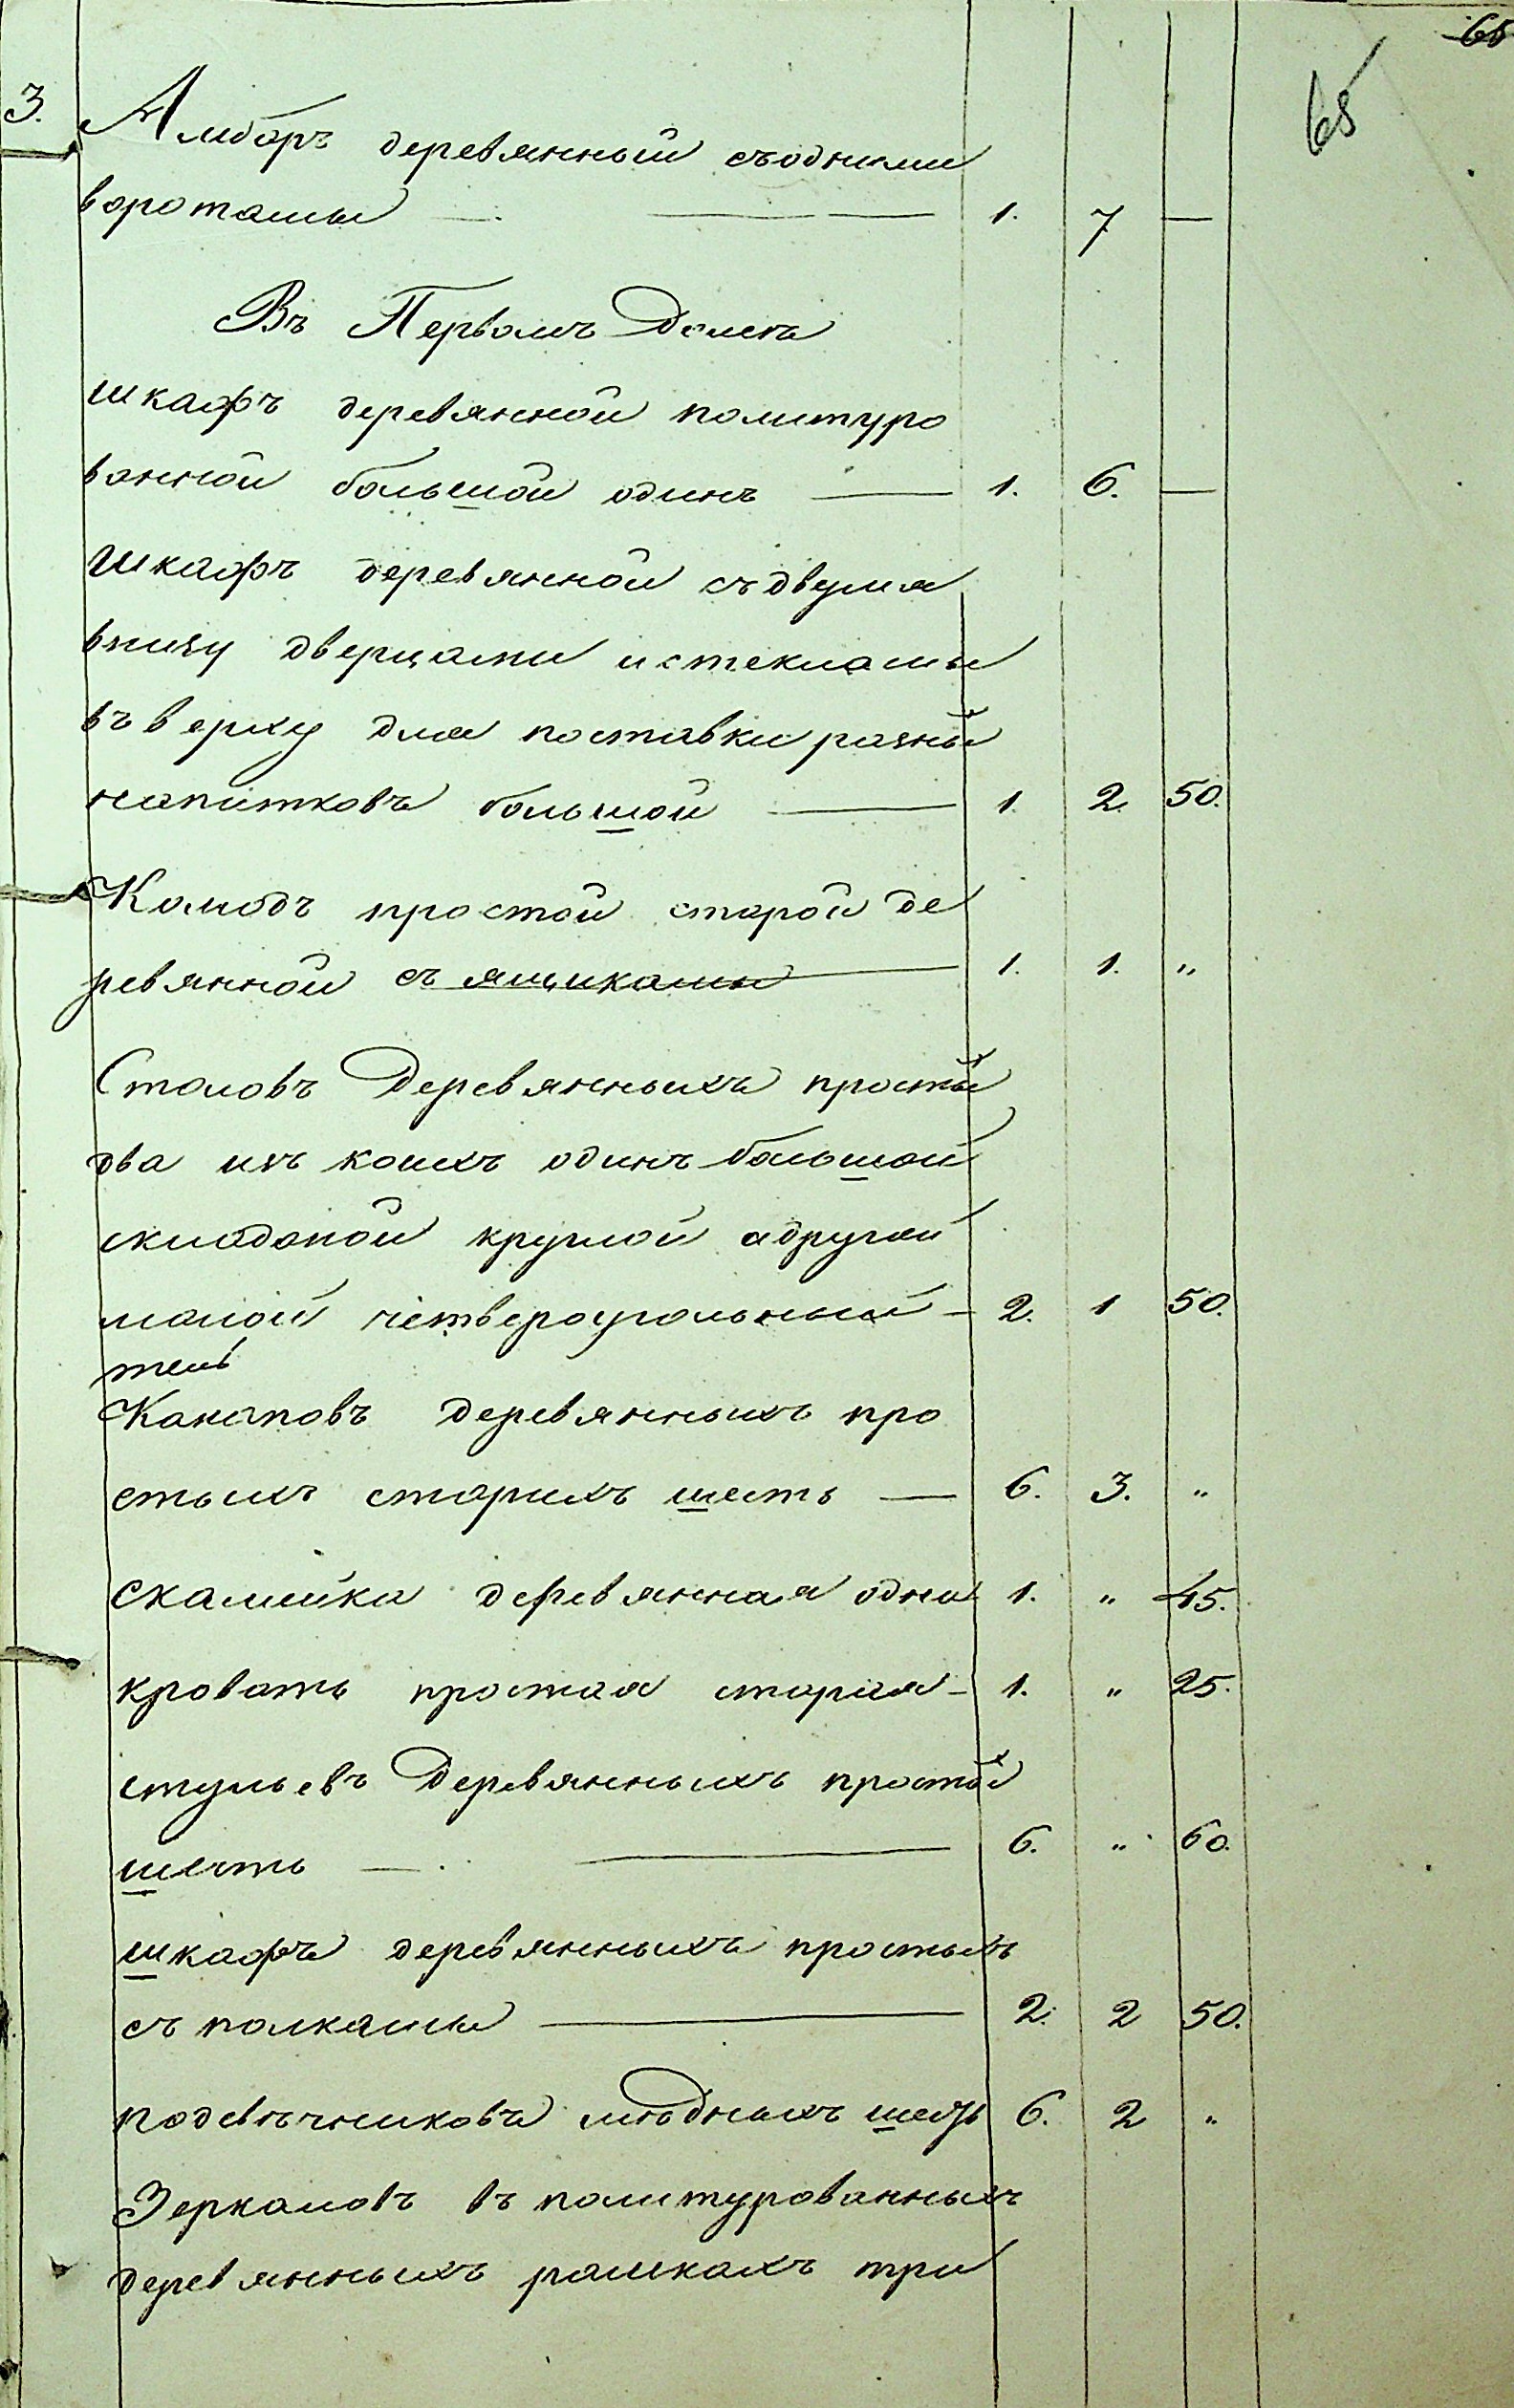 65
65
3. Амбаръ деревянный съодними
воротамы — 1. 7 —
Въ Первомъ Доме
шкафъ деревянной политуро
ванной большой одинъ — 1. 6. —
Шкафъ деревянной съдвумя
внизу дверцами истекламы
въверху для поставки разных
напитковъ большой — 1. 2. 50.
Комодъ простой старой де
ревянной съ ящикамы — 1. 1. "
Столовъ Деревянныхъ простых
два изъ коихъ одинъ большой
складаной круглой адругой
малой четвероугольный — 2. 1 50.
Канаповъ деревянныхъ про
стыхъ старихъ шесть — 6. 3. "
скамейка деревянная одна 1. " 45.
кровать простая старая — 1. " 25.
стульевъ Деревянныхъ простых
шесть — 6. " 60.
шкафъ деревянныхъ простыхъ
съ полкамы — 2. 2 50.
подсвѣчниковъ мѣдныхъ шесть 6. 2 "
Зеркаловъ въ политурованныхъ
деревянныхъ рамкахъ три